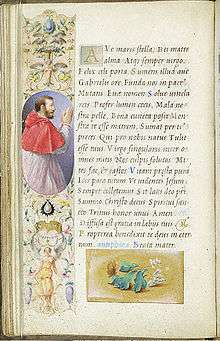 AVe maris stella, Dei mater
alma Atq; semper uirgo.
Felix cæli porta. Sumens illud aue
Gabrielis ore Funda nos in pace
Mutans Euæ nomen Solue uincla
reis Profer lumen cecis, Mala no
stra pelle, Bona cuncta posce Mon
stra te esse matrem, Sumat per te
preces Qui pro nobis natus Tulit
esse tuus. Virgo singularis inter omnes
mitis Nos culpis solutos Mi
tes fac, & castos Vitam presta puram
Iter para tutum Vt uidentes Jesum
Semper colletemur. Sit laus deo
Summo Christo decus Spiritui san
cto Tribus honor unus Amen
Diffusa est gratia in labijs tuis
Propterea benedixit te deus in eter
num. antiphona Beata mater.